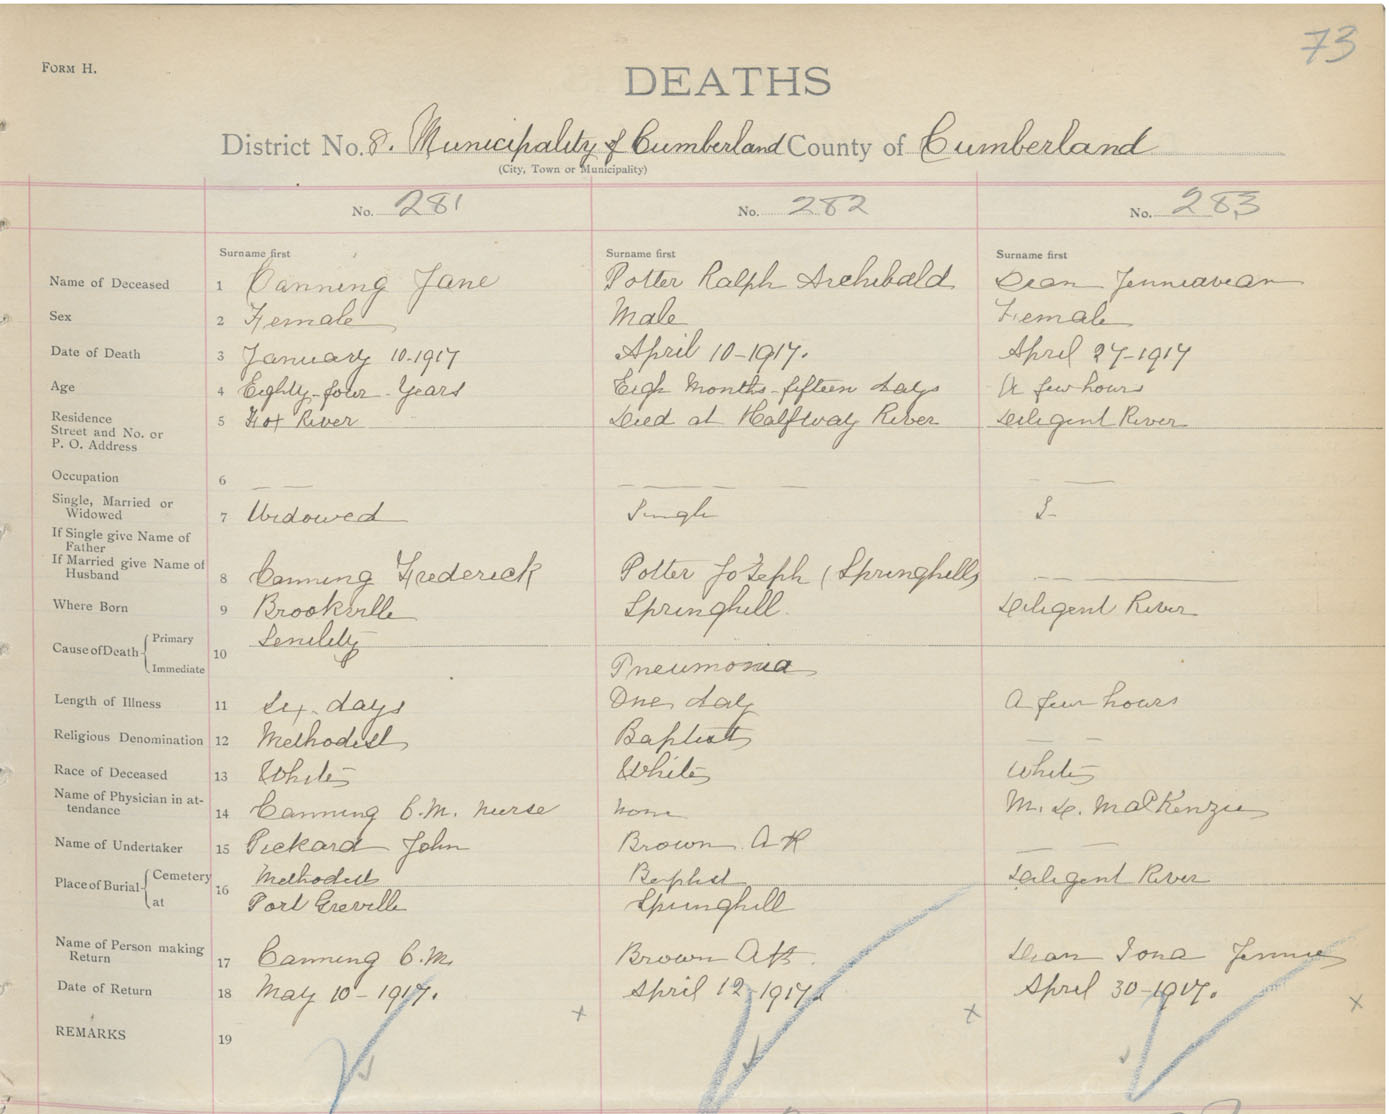 73
FORM H.
DEATHS
District No. 8. Municipality of Cumberland County of Cumberland
(City, Town or Municipality)
No. 281 No. 282 No. 283
Surname first Surname first Surname first
Name of Deceased 1 Canning Jane Potter Ralph Archibald Dean
Sex 2 Female Male Female
Date of Death 3 January 10-1917 April 10-1917. April 27-1917
Age 4 Eighty-four Years Eigh Months-fifteen days A few hours
Residence
Street and No. or 5 Fox River Died at Halfway River Diligent River
P. O. Address
Occupation 6
Single, Married or
Widowed 7 Widowed Single S-
If Single give Name of
Father
If Married give Name of
Husband 8 Canning Frederick Potter Joseph (Springhill)
Where Born 9 Brookville Springhill. Diligent River
Cause of Death Primary 10 Senility
Immediate Pneumonia
Length of Illness 11 Six days One day A few hours
Religious Denomination 12 Methodist Baptist
Race of Deceased 13 White White White
Name of Physician in at-
tendance 14 Canning C.M. nurse none M. D. MacKenzie
Name of Undertaker 15 Pickard John Brown A H
Place of Burial Cemetery 16 Methodist Baptist Diligent River
at Port Greville Springhill
Name of Person making
Return 17 Canning C.M. Brown A H. Dean Iona Jennie
Date of Return 18 May 10-1917. April 12-1917. April 30-1917.
x x x
REMARKS 19